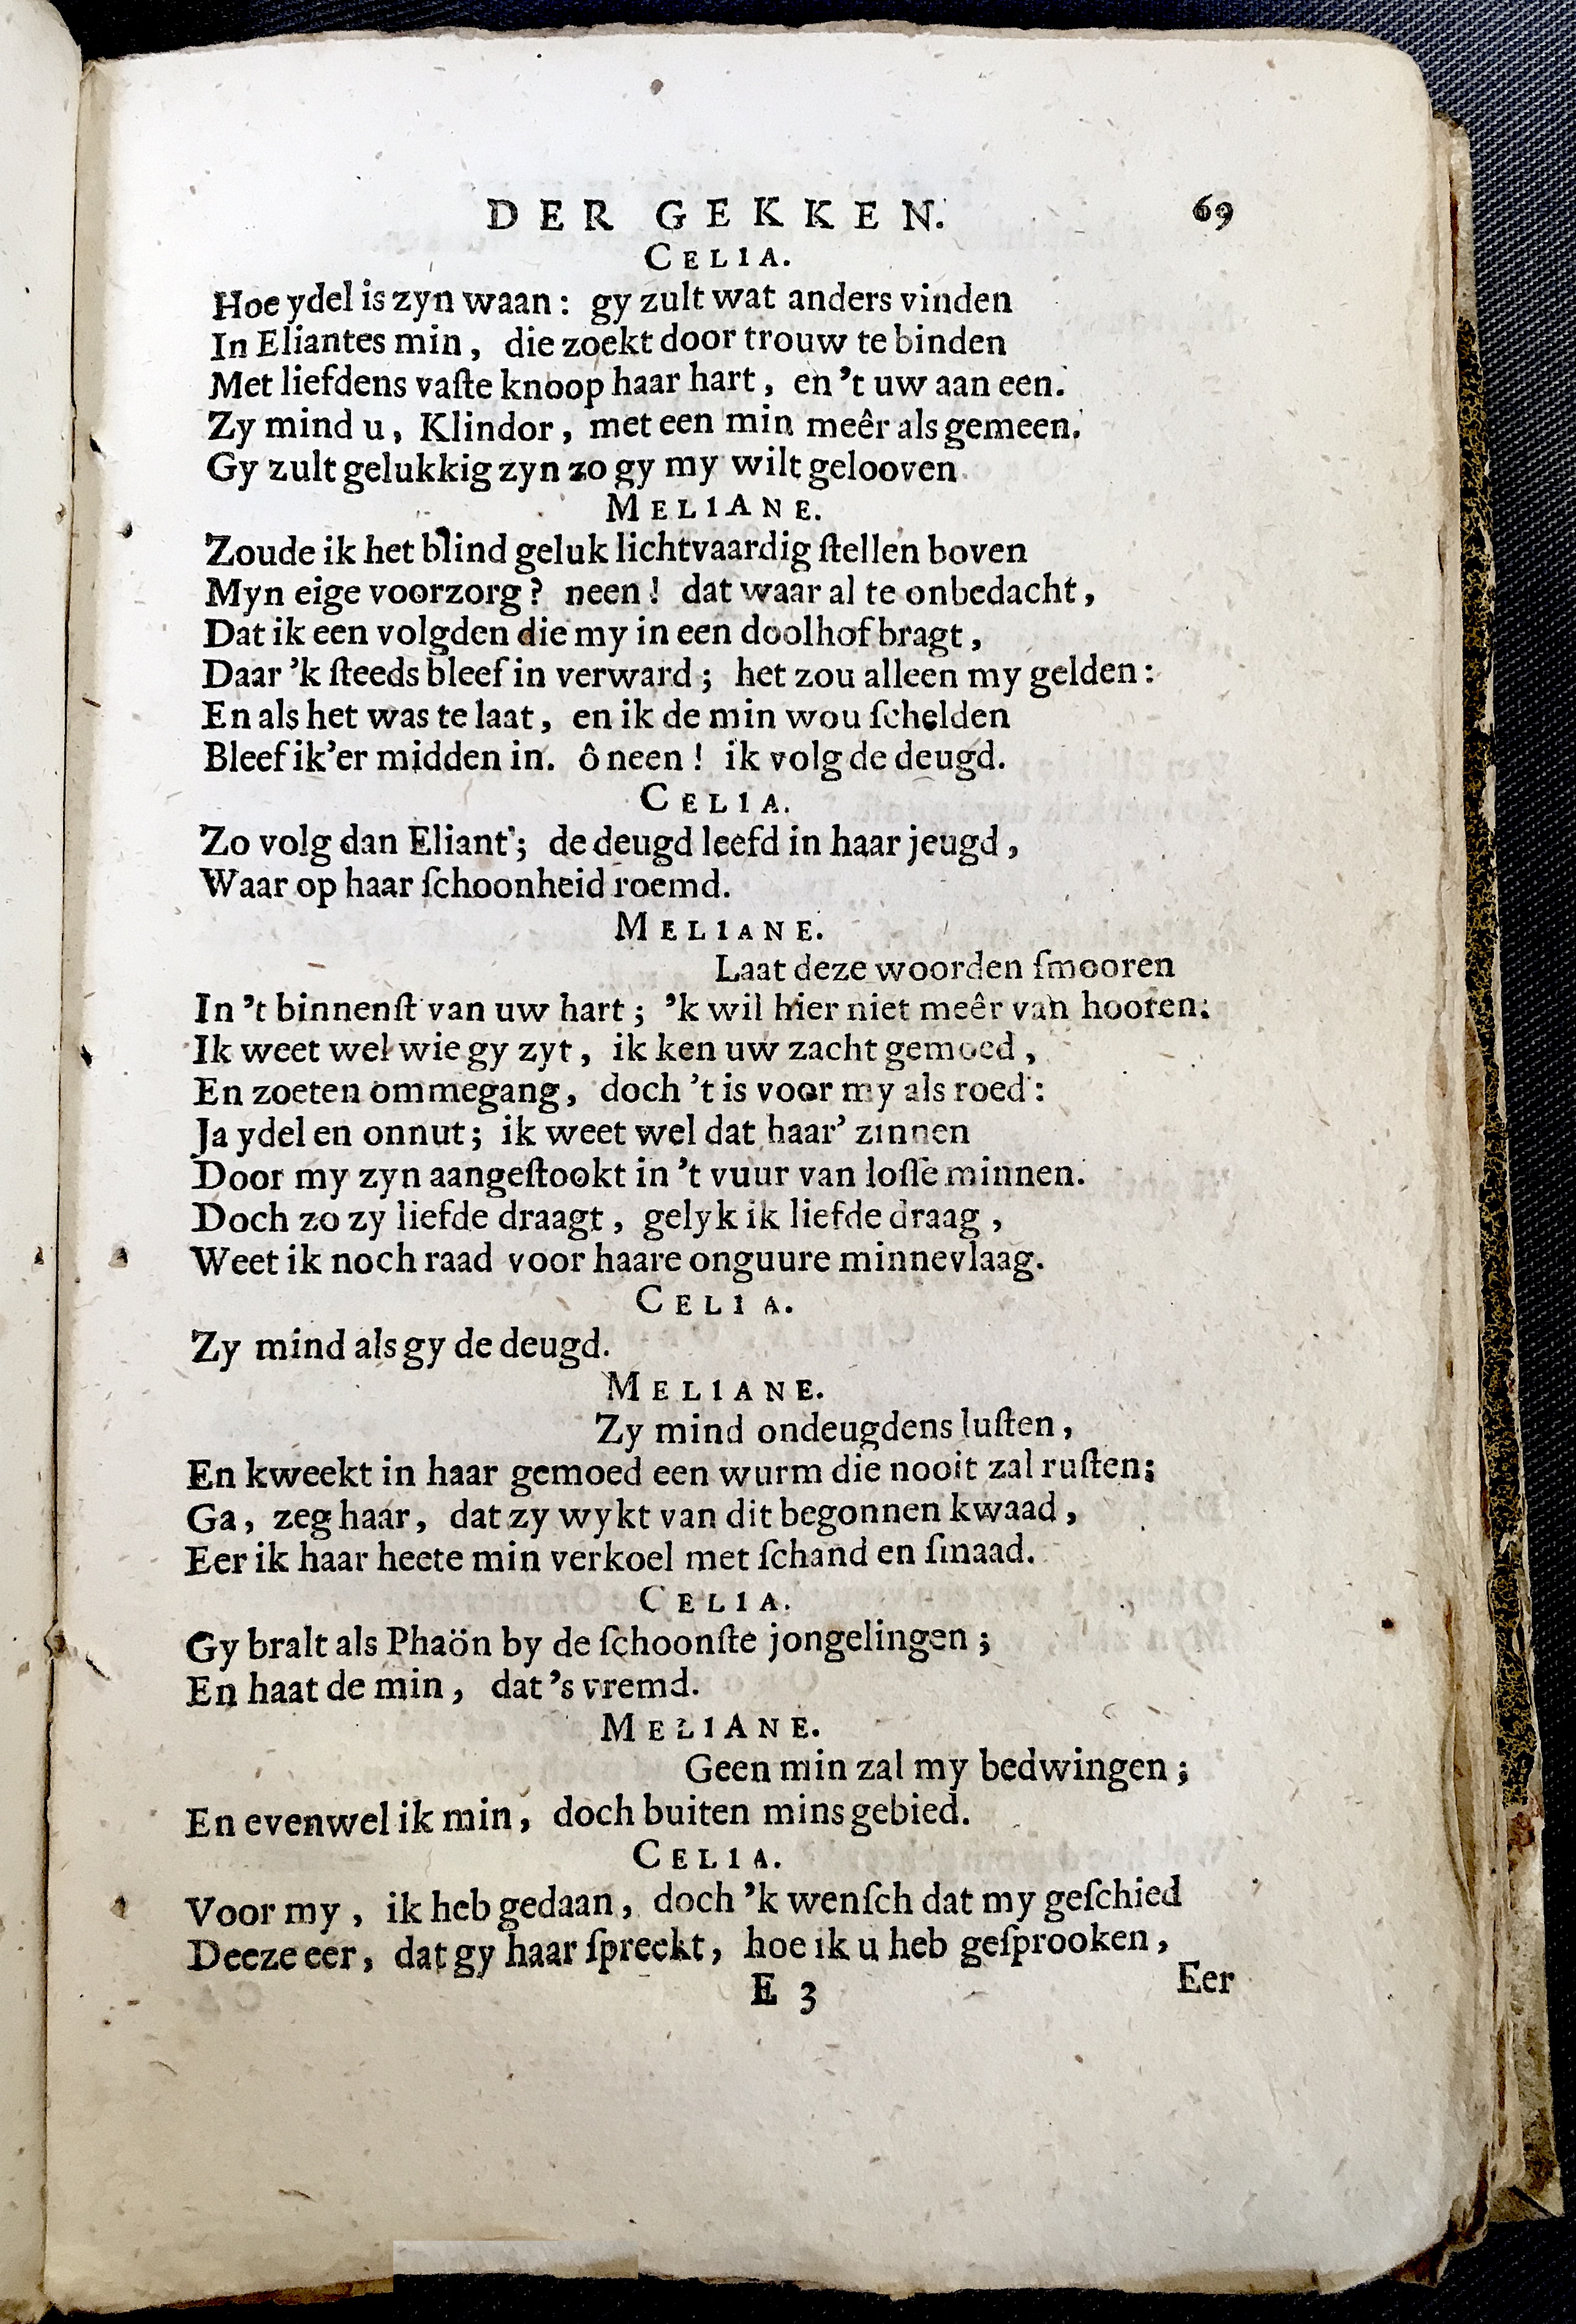 DER GEKKEN. 69
CELIA.
Hoe ydel is zyn waan: gy zult wat anders vinden
In Eliantes min, die zoekt door trouw te binden
Met liefdens vaſte knoop haar hart, en 't uw aan een.
Zy mind u, Klindor, met een min meêr als gemeen.
Gy zult gelukkig zyn zo gy my wilt gelooven
MELIANE.
Zoude ik het blind geluk lichtvaardig ſtellen boven
Myn eige voorzorg? neen! dat waar al te onbedacht,
Dat ik een volgden die my in een doolhof bragt,
Daar 'k ſteeds bleef in verward; het zou alleen my gelden:
En als het was te laat, en ik de min wou ſchelden
Bleef ik'er midden in. ô neen! ik volg de deugd.
CELIA.
Zo volg dan Eliant'; de deugd leefd in haar jeugd,
Waar op haar ſchoonheid roemd.
MELIANE.
Laat deze woorden ſmooren
In 't binnenſt van uw hart; 'k wil hier niet meêr van hooren.
Ik weet wel wie gy zyt, ik ken uw zacht gemoed,
En zoeten ommegang, doch 't is voor my als roed:
Ja ydel en onnut; ik weet wel dat haar' zinnen
Door my zyn aangeſtookt in 't vuur van loſſe minnen.
Doch zo zy liefde draagt, gelyk ik liefde draag,
Weet ik noch raad voor haare onguure minnevlaag.
CELIA.
Zy mind als gy de deugd.
MELIANE.
Zy mind ondeugdens luſten,
En kweekt in haar gemoed een wurm die nooit zal ruſten;
Ga, zeg haar, dat zy wykt van dit begonnen kwaad,
Eer ik haar heete min verkoel met ſchand en ſmaad.
CELIA.
Gy bralt als Phaön by de ſchoonſte jongelingen;
En haat de min, dat 's vremd.
MELIANE.
Geen min zal my bedwingen;
En evenwel ik min, doch buiten mins gebied.
CELIA.
Voor my, ik heb gedaan, doch 'k wenſch dat my geſchied
Deeze eer, dat gy haar ſpreekt, hoe ik u heb geſprooken,
E 3 Eer